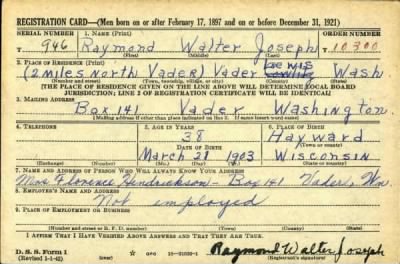 REGISTRATION CARD—(Men born on or after February 17, 1897 and on or before December 31, 1921)
SERIAL NUMBER 1. NAME (Print) ORDER NUMBER
T 946 Raymond Walter Joseph 10300
(First) (Middle) (Last)
2. PLACE OF RESIDENCE (Print)
Lewis
(2 miles North Vader) Vader Cowlitz Wash
(Number and street) (Town, township, village, or city) (County) (State)
[THE PLACE OF RESIDENCE GIVEN ON THE LINE ABOVE WILL DETERMINE LOCAL BOARD
JURISDICTION; LINE 2 OF REGISTRATION CERTIFICATE WILL BE IDENTICAL]
3. MAILING ADDRESS
Box 141 Vader Washington
[Mailing address if other than place indicated on line 2. If same insert word same]
4. TELEPHONE 5. AGE IN YEARS 6. PLACE OF BIRTH
38 Hayward
DATE OF BIRTH (Town or county)
March 21 1903 Wisconsin
(Exchange) (Number) (Mo.) (Day) (Yr.) (State or country)
7. NAME AND ADDRESS OF PERSON WHO WILL ALWAYS KNOW YOUR ADDRESS
Mrs Florence Hendrickson - Box 141 Vader, Wn.
8. EMPLOYER'S NAME AND ADDRESS
Not employed
9. PLACE OF EMPLOYMENT OR BUSINESS
(Number and street or R. F. D. number) (Town) (County) (State)
I AFFIRM THAT I HAVE VERIFIED ABOVE ANSWERS AND THAT THEY ARE TRUE.
D. S. S. Form 1
(Revised 1-1-42) GPO Raymond Walter Joseph
(Registrant's signature)